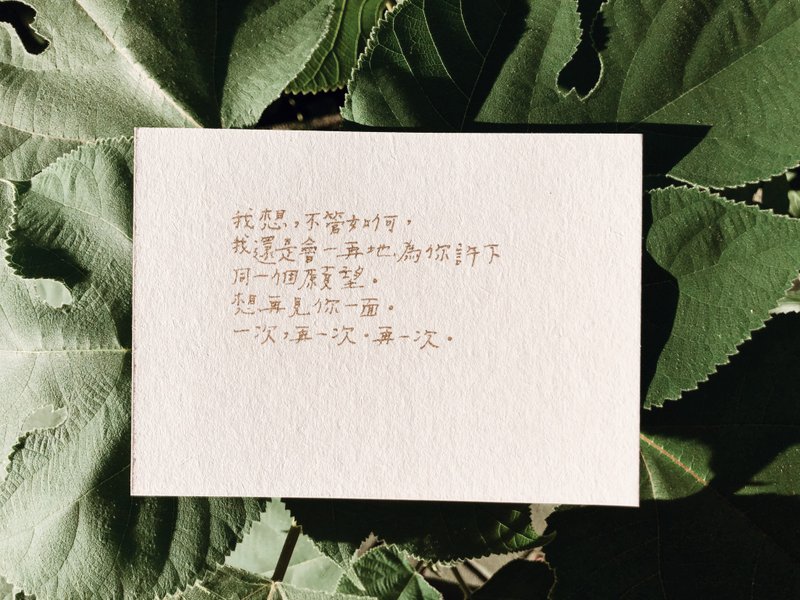 我想，不管如何，
我還是會一再地，為你許下
同一個願望。
想再見你一面。
一次，再一次，再一次。